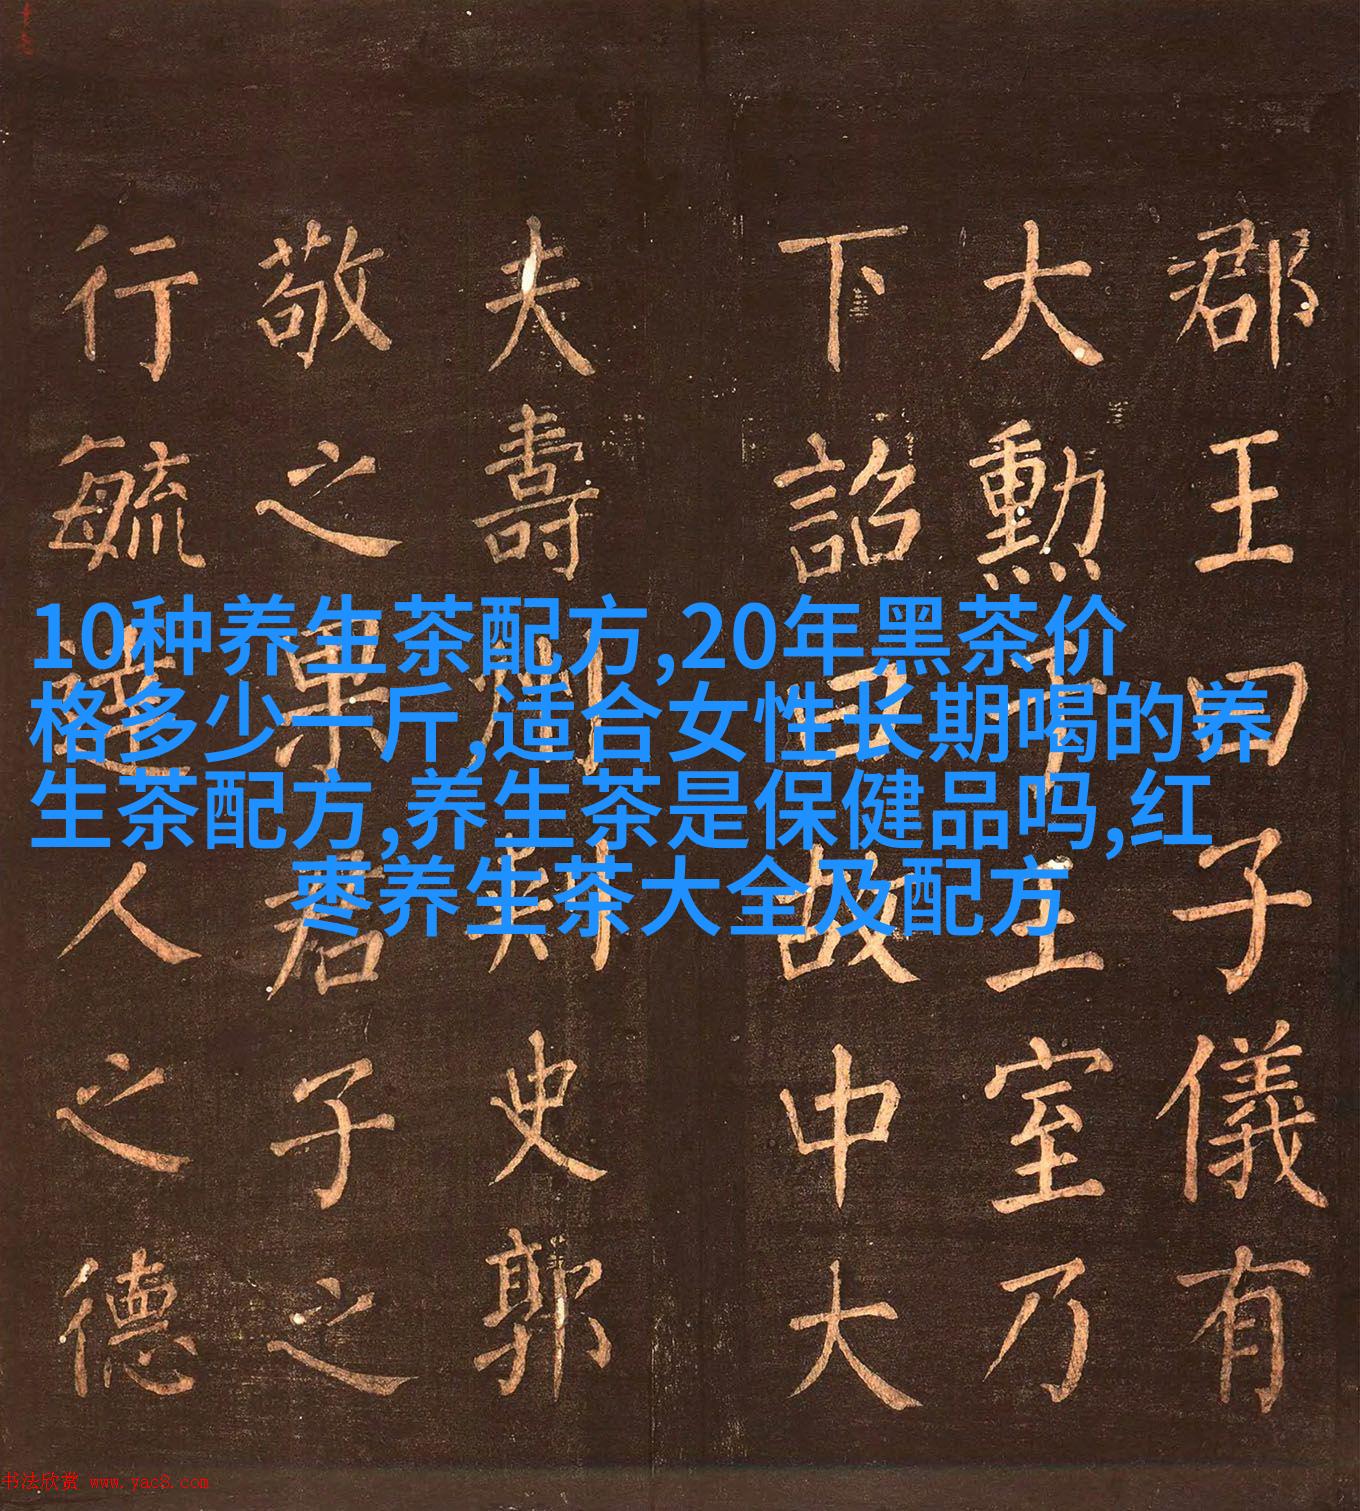 10种养生茶配方,20年黑茶价
格多少一斤,适合女性长期喝的养
生茶配方,养生茶是保健品吗,红
枣养生茶大全及配方
郡王曰子儀有
大勳于王室乃
下詔曰故中大
夫壽州刺史郭
敬之君子之
行毓達人之德
书法欣赏 www.yac8.com